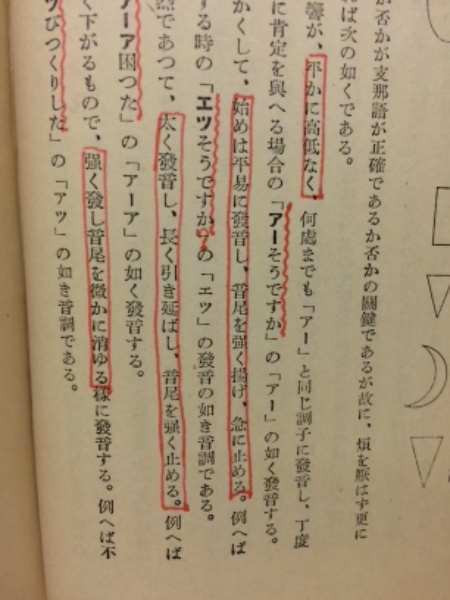 か否かが支那語が正確であるか否かの關鍵であるが故に、煩を厭はず更に
れば次の如くである。
響が、平かに高低なく、何處までも「アー」と同じ調子に發音し、丁度
に肯定を與へる場合の「アーそうですか」の「アー」の如く發音する。
かくして、始めは平易に發音し、音尾を强く揚げ、急に止める。例へば
する時の「エツそうですか?」の「エッ」の發音の如き音調である。
然であつて、太く發音し、長く引き延ばし、音尾を强く止める。例へば
アーア困つた」の「アーア」の如く發音する。
く下がるもので、强く發し音尾を微かに消ゆる樣に發音する。例へば不
ツびつくりした」の「アッ」の如き音調である。